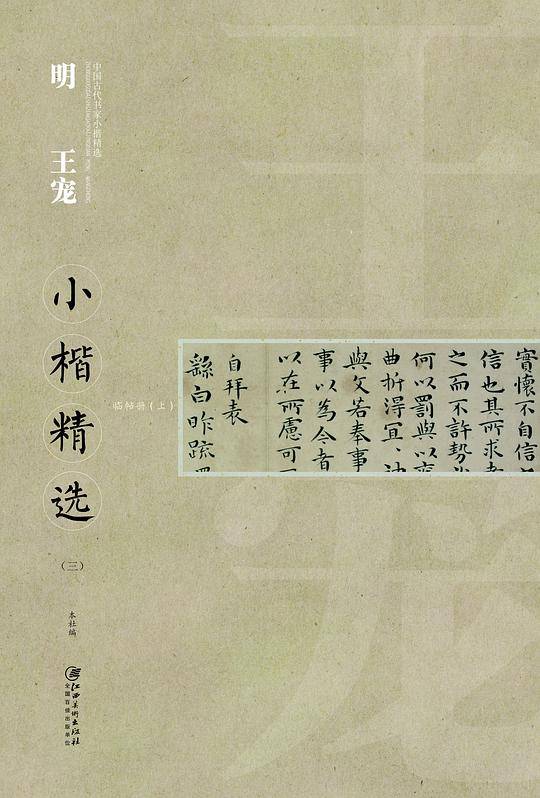 中国古代书家小楷精选
明 王宠
小楷精选
临帖册(上)
(三)
本社编
江西美术出版社
全国百佳出版单位
實懷不自信
信也其所求者
之而不許勢
何以罰與以
曲折得宜
與文若奉事
事以為今者
以在所慮可
自拜表
繇白昨疏
王宠